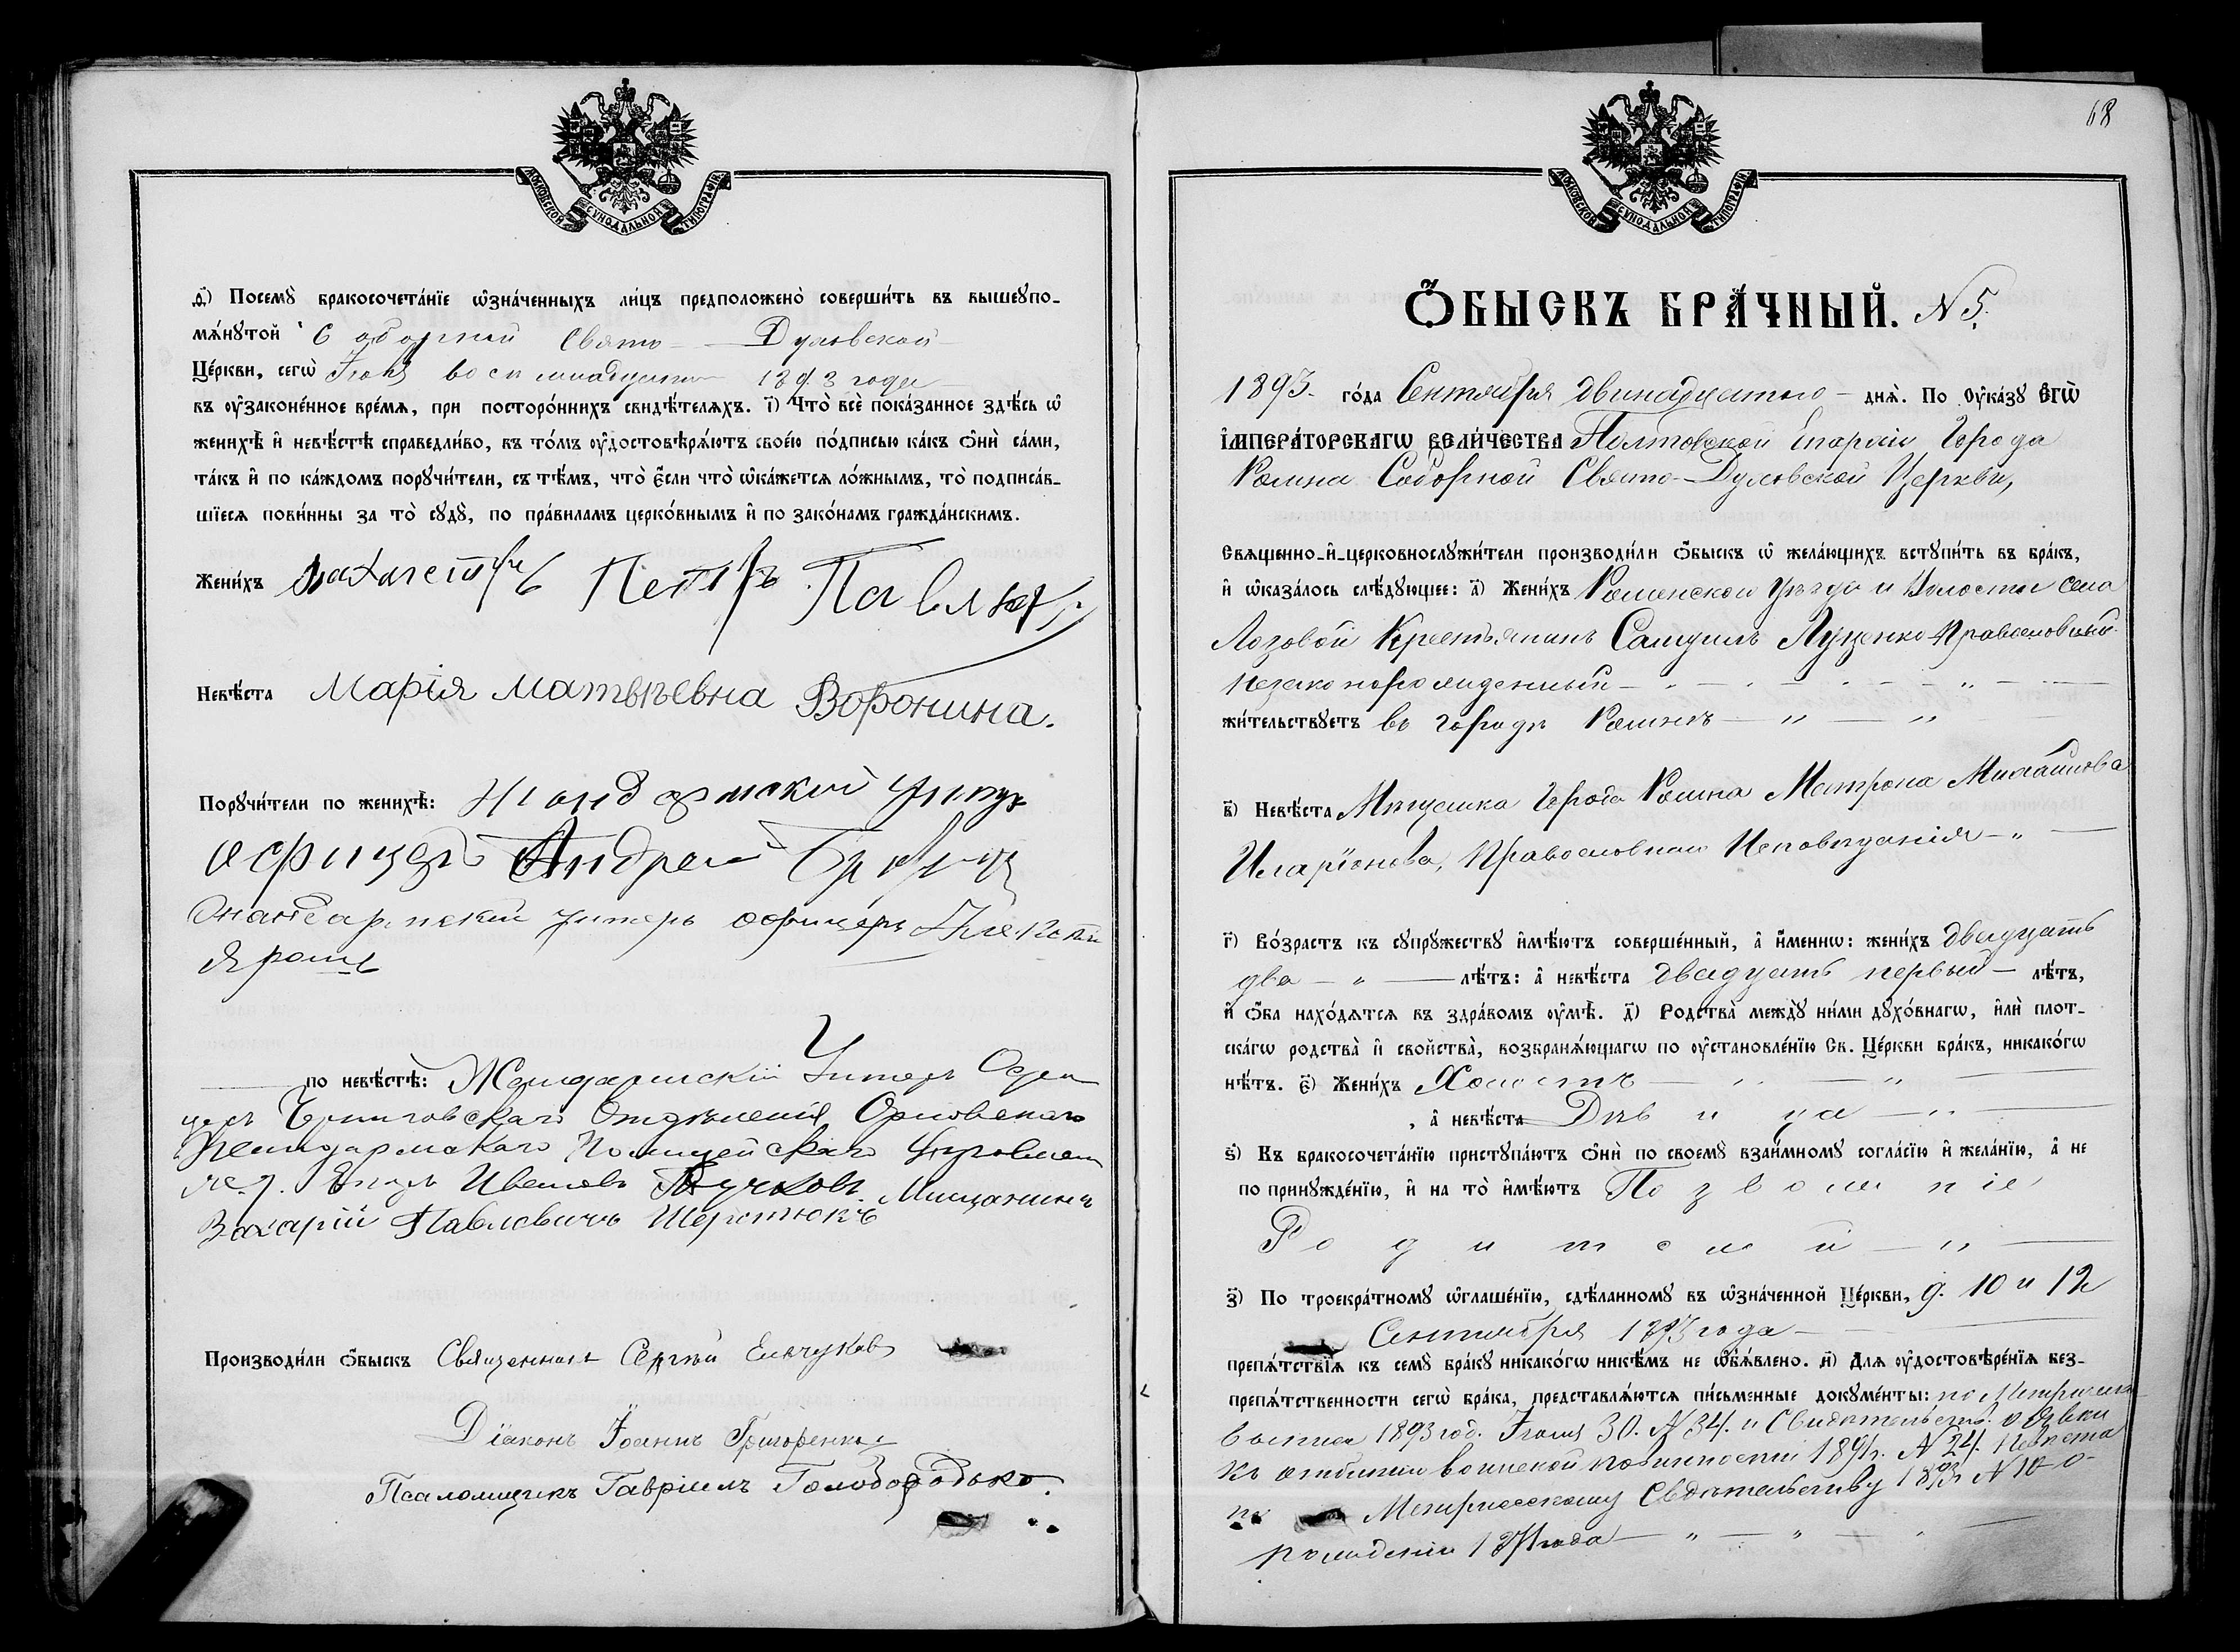 МОСКОВСКОЙ СУНОДАЛЬНОЙ ТИПОГРАФІИ.
д҃) Посемꙋ̀ бракосочета́нїе ѡ҆зна́ченныхъ ли́цъ предположено̀ соверши́ть въ вышеꙋпо-
мѧ́нꙋтой Соборной Свято - Духовской
Це́ркви, сегѡ̀ Іюня восемнадцатаго 1893 года
въ ᲂу҆законе́нное вре́мѧ, при посторо́ннихъ свидѣ́телѧхъ. і҃) Что̀ всѐ пока́занное здѣ́сь ѡ҆
женихѣ̀ и҆ невѣ́стѣ справедли́во, въ то́мъ ᲂу҆достовѣрѧ́ютъ свое́ю по́дписью ка́къ ѻ҆нѝ са́ми,
та́къ и҆ по ка́ждомъ порꙋчи́тели, съ тѣ́мъ, что̀ є҆́сли что̀ ѡ҆ка́жетсѧ ло́жнымъ, то̀ подписа́в-
шїесѧ пови́нны за то̀ сꙋдꙋ̀, по пра́виламъ церко́внымъ и҆ по зако́намъ гражда́нскимъ.
Жени́хъ Петръ
Невѣ́ста Марія Матвѣевна Воронина.
Порꙋчи́тели по женихѣ̀: Жандармскій унтеръ
офицеръ Андрей
Жандармскій унтеръ офицеръ Алексѣй
Ярошъ
по невѣ́стѣ: Жандармскій Унтеръ Офи
церъ Черниговскаго Отдѣленія Орловскаго
Жандармскаго Полицейскаго Управлен
ж. д. Иванов Мищанинъ
Захарій Павловичъ Шерстюкъ
Производи́ли ѻ҆́быскъ Священникъ Сергѣй
Діаконъ Іоаннъ Григоренко.
Псаломщикъ Гавріилъ Голобородько.
68
МОСКОВСКОЙ СУНОДАЛЬНОЙ ТИПОГРАФІИ.
Ѻ҆́БЫСКЪ БРА́ЧНЫЙ. N 5.
1893. го́да Сентября двинадцатаго - днѧ̀. По Оу҆ка́зꙋ Є҆гѡ̀
І҆МПЕРА́ТОРСКАГѠ ВЕЛИ́ЧЕСТВА Полтавской Епархіи Города
Ромна Соборной Свято-Духовской Церкви,
Свѧщенно-и҆-церковнослꙋжи́тели производи́ли ѻ҆́быскъ ѡ҆ жела́ющихъ встꙋпи́ть въ бра́къ,
и҆ ѡ҆каза́лось слѣ́дꙋющее: а҃) Жени́хъ Роменскаго уѣзда и Волости села
Лозовой Крестьянинъ Самуилъ Луценко Православный
незаконорожденный
жи́тельствꙋетъ въ городѣ Ромнѣ
в҃) Невѣ́ста Мѣщанка Города Ромна Матрона Михайлова
Иларіонова, Православнаго Исповѣданія
г҃) Во́зрастъ къ сꙋпрꙋ́жествꙋ и҆мѣ́ютъ соверше́нный, а҆ и҆́меннѡ: жени́хъ двадцать
два лѣ́тъ: а҆ невѣ́ста двадцать первый лѣ́тъ,
и҆ ѻ҆́ба нахо́дѧтсѧ въ здра́вомъ ᲂу҆мѣ̀. д҃) Родства̀ междꙋ̀ ни́ми дꙋхо́внагѡ, и҆лѝ плот-
ска́гѡ родства̀ и҆ свойства̀, возбранѧ́ющагѡ по ᲂу҆становле́нїю Св. Це́ркви бра́къ, никако́гѡ
нѣ́тъ. є҃) Жени́хъ Холостъ
, а҆ невѣ́ста Дѣвица
ѕ҃) Къ бракосочета́нїю пристꙋпа́ютъ ѻ҆нѝ по своемꙋ̀ взаи́мномꙋ согла́сїю и҆ жела́нїю, а҆ не
по принꙋжде́нїю, и҆ на то̀ и҆мѣ́ютъ Позволеніе
Родителей
з҃) По троекра́тномꙋ ѡ҆глаше́нїю, сдѣ́ланномꙋ въ ѡ҆зна́ченной Це́ркви, 9. 10 и 12
Сентября 1893 года
препѧ́тствїѧ къ семꙋ̀ бра́кꙋ никако́гѡ никѣ́мъ не ѡ҆б̾ѧ́влено. и҃) Длѧ ᲂу҆достовѣре́нїѧ без-
препѧ́тственности сегѡ̀ бра́ка, представлѧ́ютсѧ пи́сьменные докꙋме́нты: по Метрическ
выписи 1893 год. Іюля 30. N 34. и Свидѣтельств. о явки
къ отбытию воинской повинности 189 г. N 24. Невѣста
по Метрическому Свидѣтельству 1893 N 100
рожденіи 1871 года